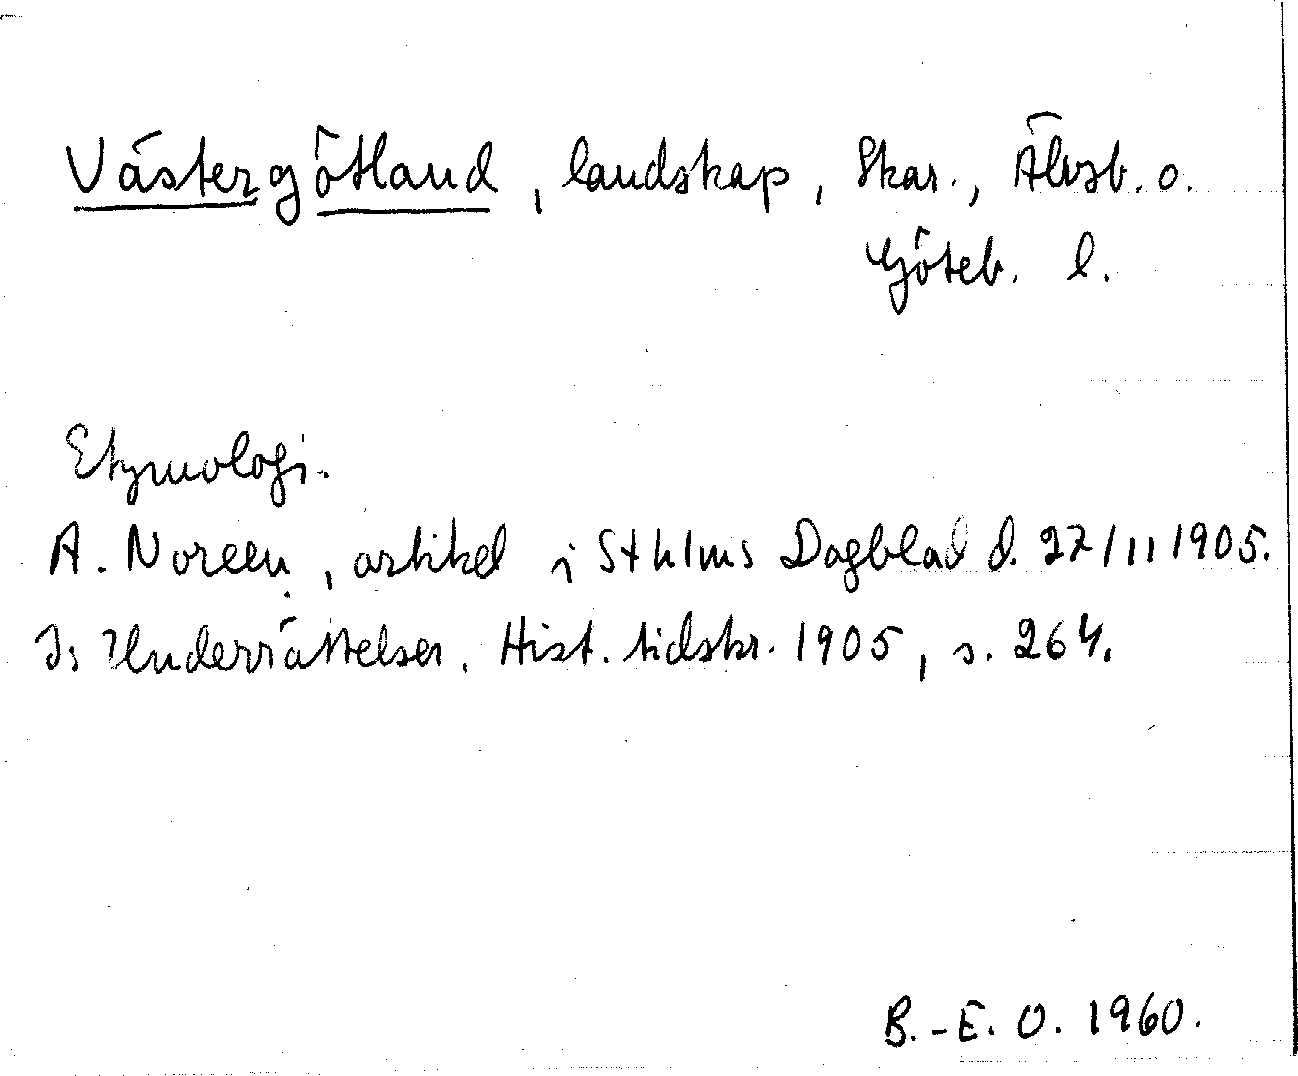 Västergötland, landskap, Skar., Älvsb. o.
Göteb. l.
Etymologi.
A. Noreen, artikel i Sthlms Dagblad d. 27/11 1905.
I: Underrättelser. Hist. tidskr. 1905, s. 264.
B.-E. O. 1960.